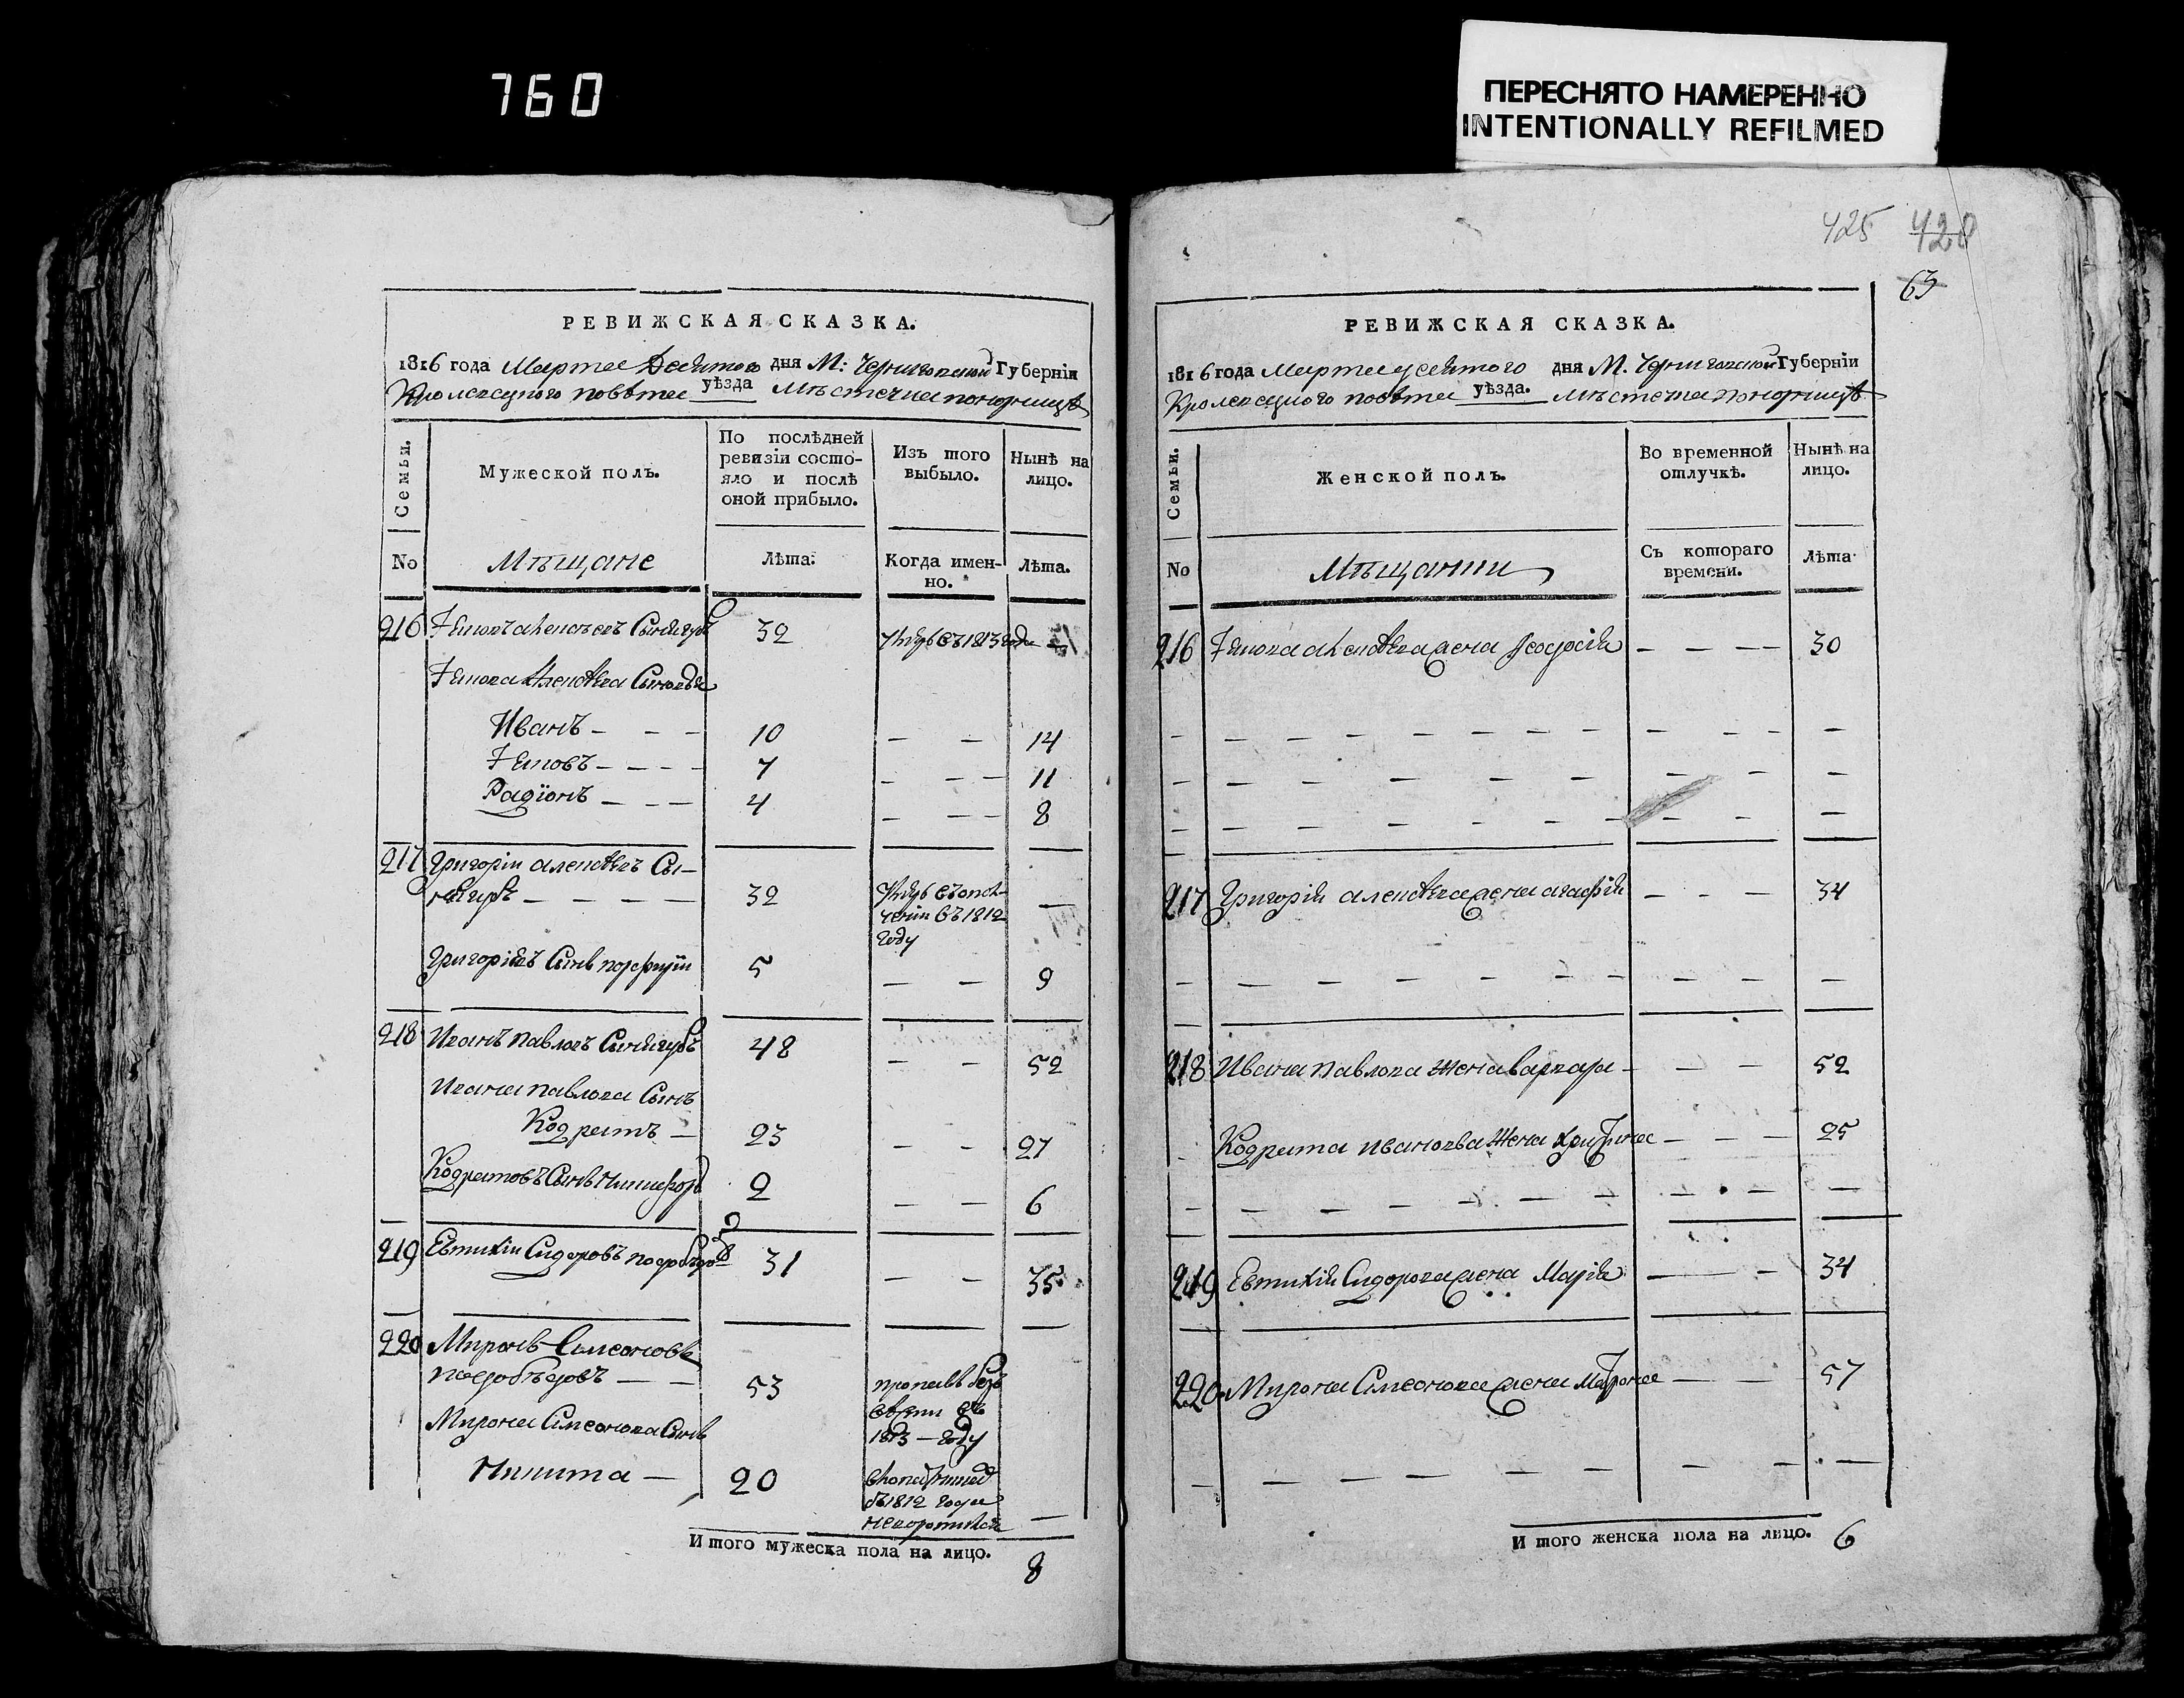 760
ПЕРЕСНЯТО НАМЕРЕННО
INTENTIONALLY REFILMED
РЕВИЖСКАЯ СКАЗКА.
1816 года Марта Десятого дня М: Черниговской Губерніи
Кролевецкого повѣта уѣзда Мѣстечка понорницѣ
Семьи.
Мужеской полъ.
По послѣдней ревизіи состояло и послѣ оной прибыло.
Изъ того выбыло.
Нынѣ на лицо.
No
Мѣщане
Лѣта:
Когда именно.
Лѣта.
216 32
Иванъ — — — 10 — — 14
7 — — — 11
Радіонъ — — — 4 — — — 8
217 Григорій Алексѣевъ Сы-
— — — — 32 въ 1812 году —
Григоріевъ Сынъ порфирій 5 — — 9
218 Иванъ Павловъ 48 — — 52
Ивана Павлова Сынъ
Кодратъ — 23 — — 27
Кодратовъ Сынъ Никифоръ 2 — — 6
219 Евтихій Сидоровъ 31 — — 35
220 Миронъ Симеоновъ
— — 53 пропалъ безъ
вѣсти въ
1813 — году
Мирона Симеонова Сынъ
Никита — 20
1812 года
—
И того мужеска пола на лицо. 8
425 428
63
РЕВИЖСКАЯ СКАЗКА.
1816 года Марта десятого дня М. Черниговской Губерніи
Кролевецкого повѣта уѣзда. Мѣстечка Понорницѣ
Семьи.
Женской полъ.
Во временной отлучкѣ.
Нынѣ на лицо.
No
Мѣщанки
Съ котораго времени.
Лѣта
216 жена — — — — 30
217 Григорія Алексѣева жена агафія — — — 34
218 Ивана Павлова Жена Варвара — — — 52
Кодрата Иванова Жена — — — 25
219 Евтихія Сидорова жена Марія — — 34
220 Мирона Симеонова жена Матрона — — 57
И того женска пола на лицо. 6